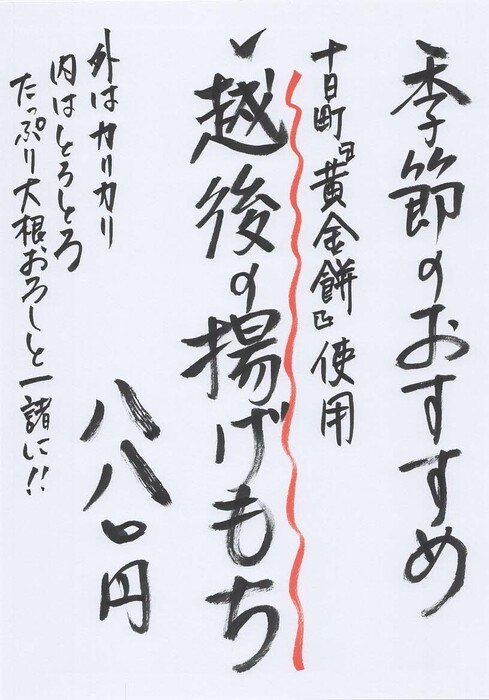 季節のおすすめ
十日町『黄金餅』使用
越後の揚げもち
外はカリカリ
内はとろとろ
たっぷり大根おろしと一諸に!!
八八〇円